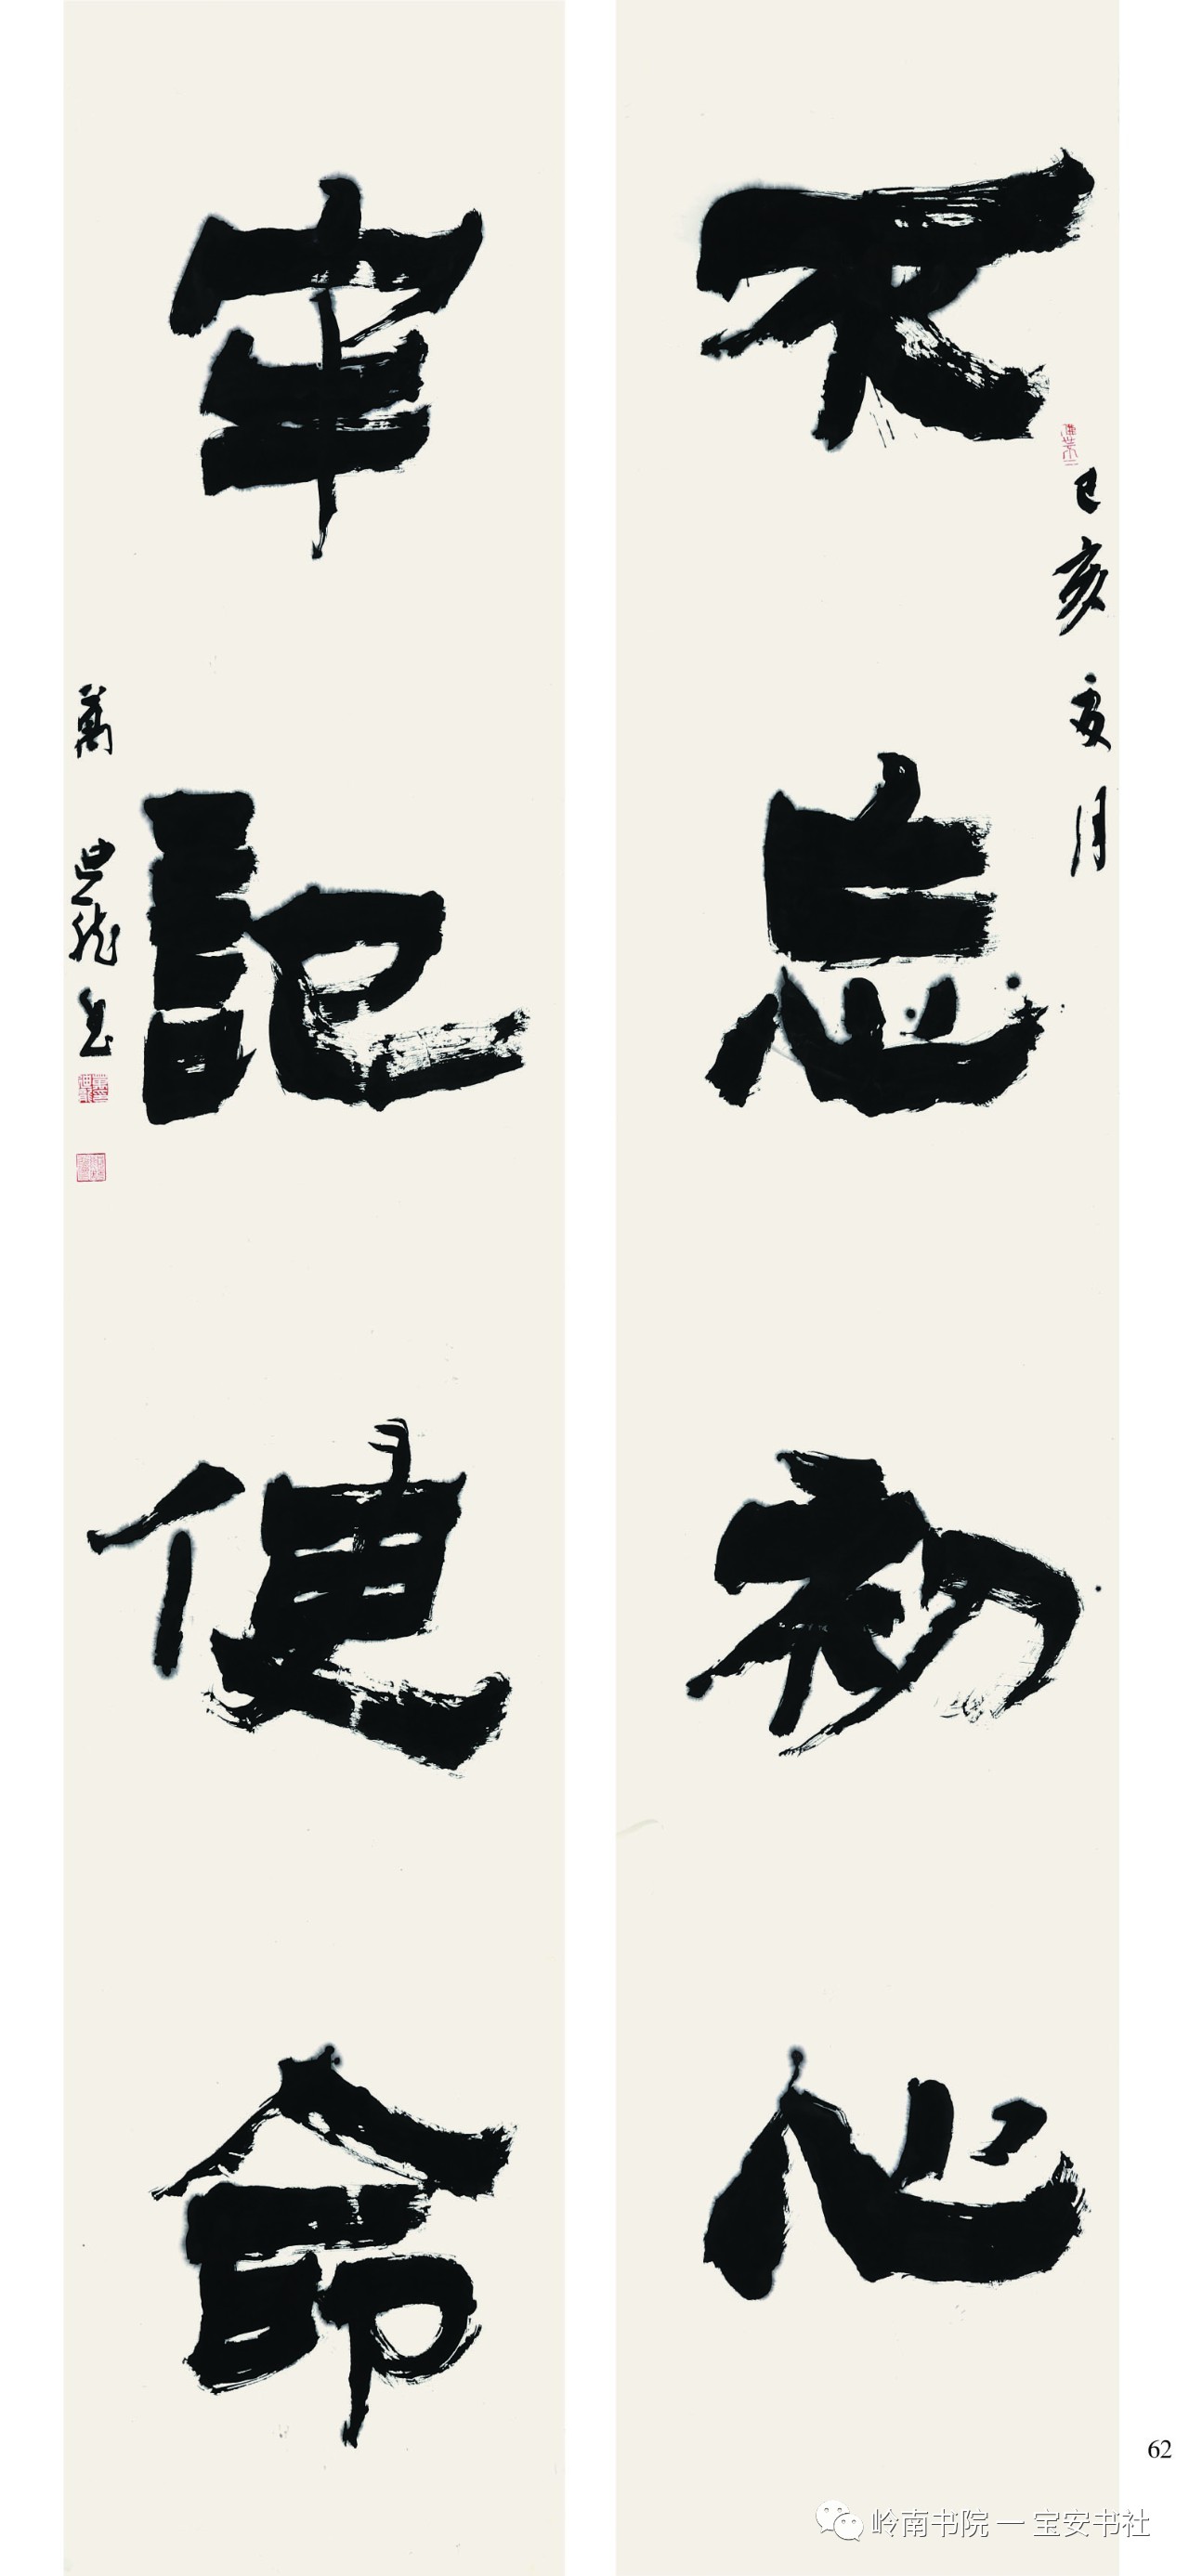 不忘初心
己亥夏月
牢記使命
萬
书
62
岭南书院 — 宝安书社